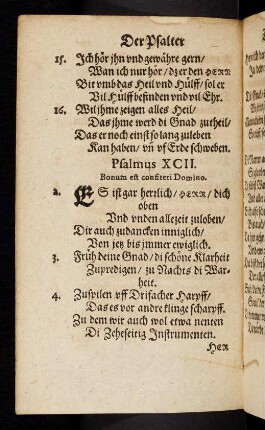 Der Psalter
15. Ich hör jhn vnd gewähre gern/
Wan ich nur hör/ dz er den HERR
Bit vmb das Heil vnd Hülff/ sol er
Vil Hülff befinden vnd vil Ehr.
16. Wil jhme zeigen alles Heil/
Das jhme werd di Gnad zutheil/
Das er noch einst so lang zuleben
Kan haben/ vñ vf Erde schweben.
Psalmus XCII.
Bonum est confiteri Domino.
2. ES ist gar herrlich/ HERR/ dich
oben
Vnd vnden allezeit zuloben/
Dir auch zudancken inniglich/
Von jetz bis jmmer ewiglich.
3. Früh deine Gnad/ di schöne Klarheit
Zupredigen/ zu Nachts di War-
heit.
4. Zuspilen vff Drifacher Harpff/
Das es vor andre klinge scharpff.
Zu dem wir auch wol etwa nenten
Di Zeheseitig Instrumenten.
HER